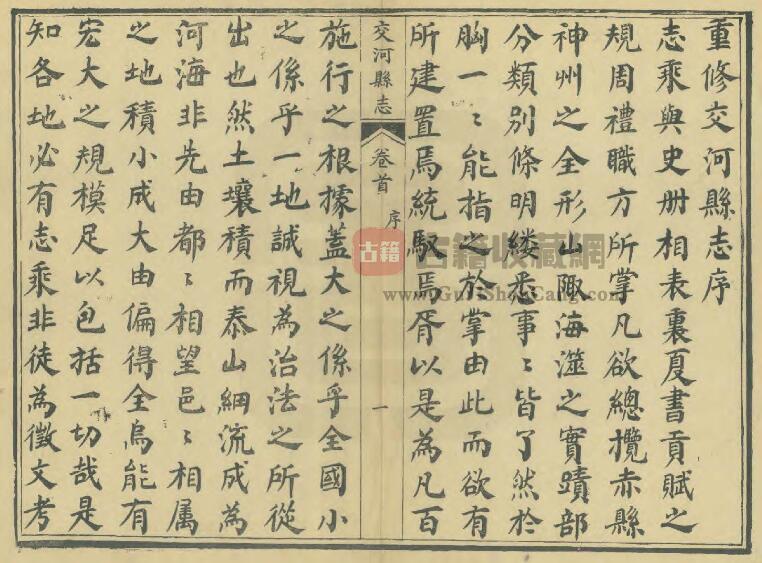 重修交河縣志序
志乘與史册相表裏夏書貢賦之
規周禮職方所掌凡欲總攬赤縣
神州之全形山陬海澨之實蹟部
分類别條明縷悉事〻皆了然於
胸一〻能指之於掌由此而欲有
所建置焉統馭焉胥以是為凡百
交河縣志 卷首 序 一
施行之根據蓋大之係乎全國小
之係乎一地誠視為治法之所從
出也然土壤積而泰山細流成為
河海非先由都〻相望邑〻相属
之地積小成大由偏得全烏能有
宏大之規模足以包括一切哉是
知各地必有志乘非徒為徵文考
古籍
古籍收藏網
www.GuJiShouCang.com